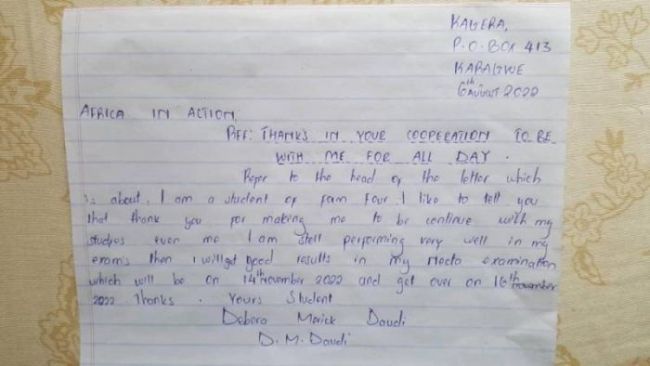 KAGERA,
P.O.BOX 413
KARAGWE
6th AUGUST 2022
AFRICA IN ACTION,
REF: THANKS IN YOUR COOPERATION TO BE
WITH ME FOR ALL DAY.
Refer to the head of the letter which
is about. I am a student of form four I like to tell you
that thank you for making me to be continue with my
studies even me I am still performing very well in my
exams then I will get good results in my Necta examination
which will be on 14th November 2022 and get over on 16th november
2022 Thanks. Yours Student
Debora Merick Daudi
D.M.Daudi